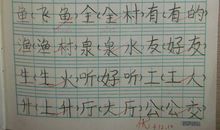 鱼飞鱼全全村有有的
渔渔村泉泉水友好友
牛牛火听好听工工人
升上升厅大厅公公交